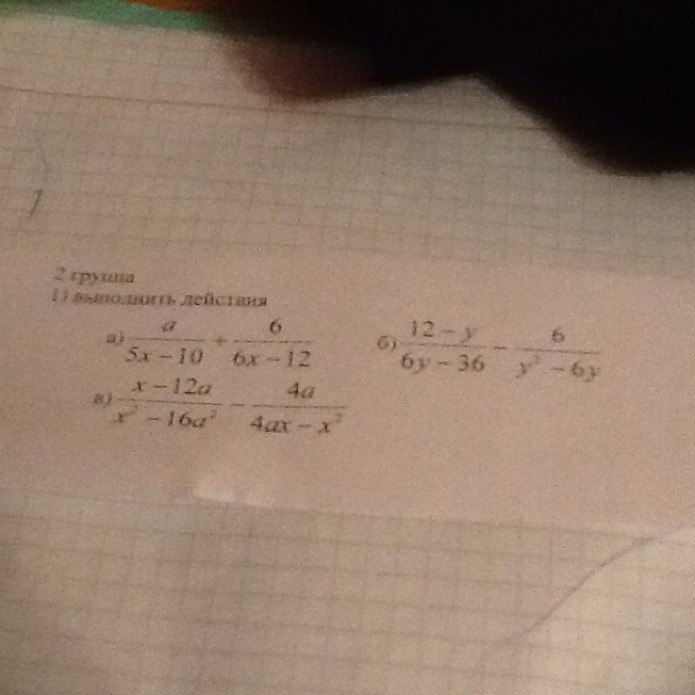 2 группа
1) выполнить действия
а) \frac{a}{5x-10} + \frac{6}{6x-12} б) \frac{12-y}{6y-36} - \frac{6}{y^2-6y}
в) \frac{x-12a}{x^2-16a^2} - \frac{4a}{4ax-x^2}